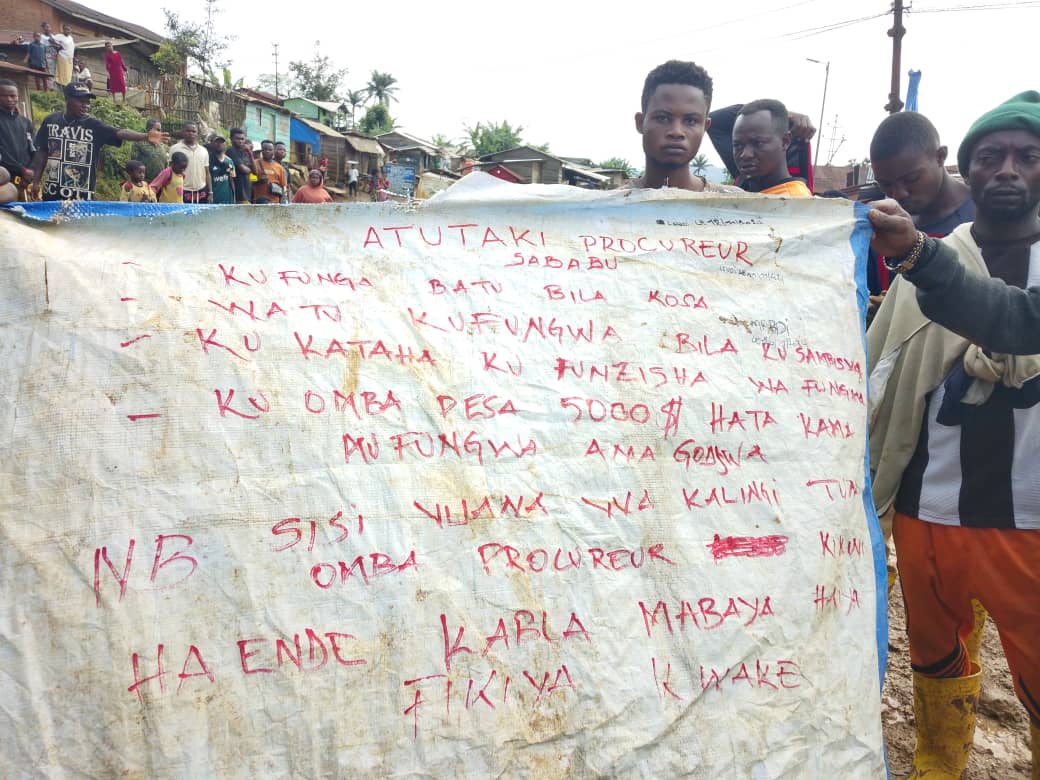 TRAVIS
SCOTT
ATUTAKI PROCUREUR
SABABU
- KU FUNGA BATU BILA KOSA
- WATU KUFUNGWA BILA KUSAMBISWA
- KU KATAHA KU FUNZISHA WA FUNGWA
- KU OMBA DESA 5000$ HATA KAMA
MUFUNGWA AMA GODJWA
NB SISI VIJANA WA KALINGI TUA
OMBA PROCUREUR KIKUNI
HA ENDE KABLA MABAYA HAIYA
FIKIYA KWAKE